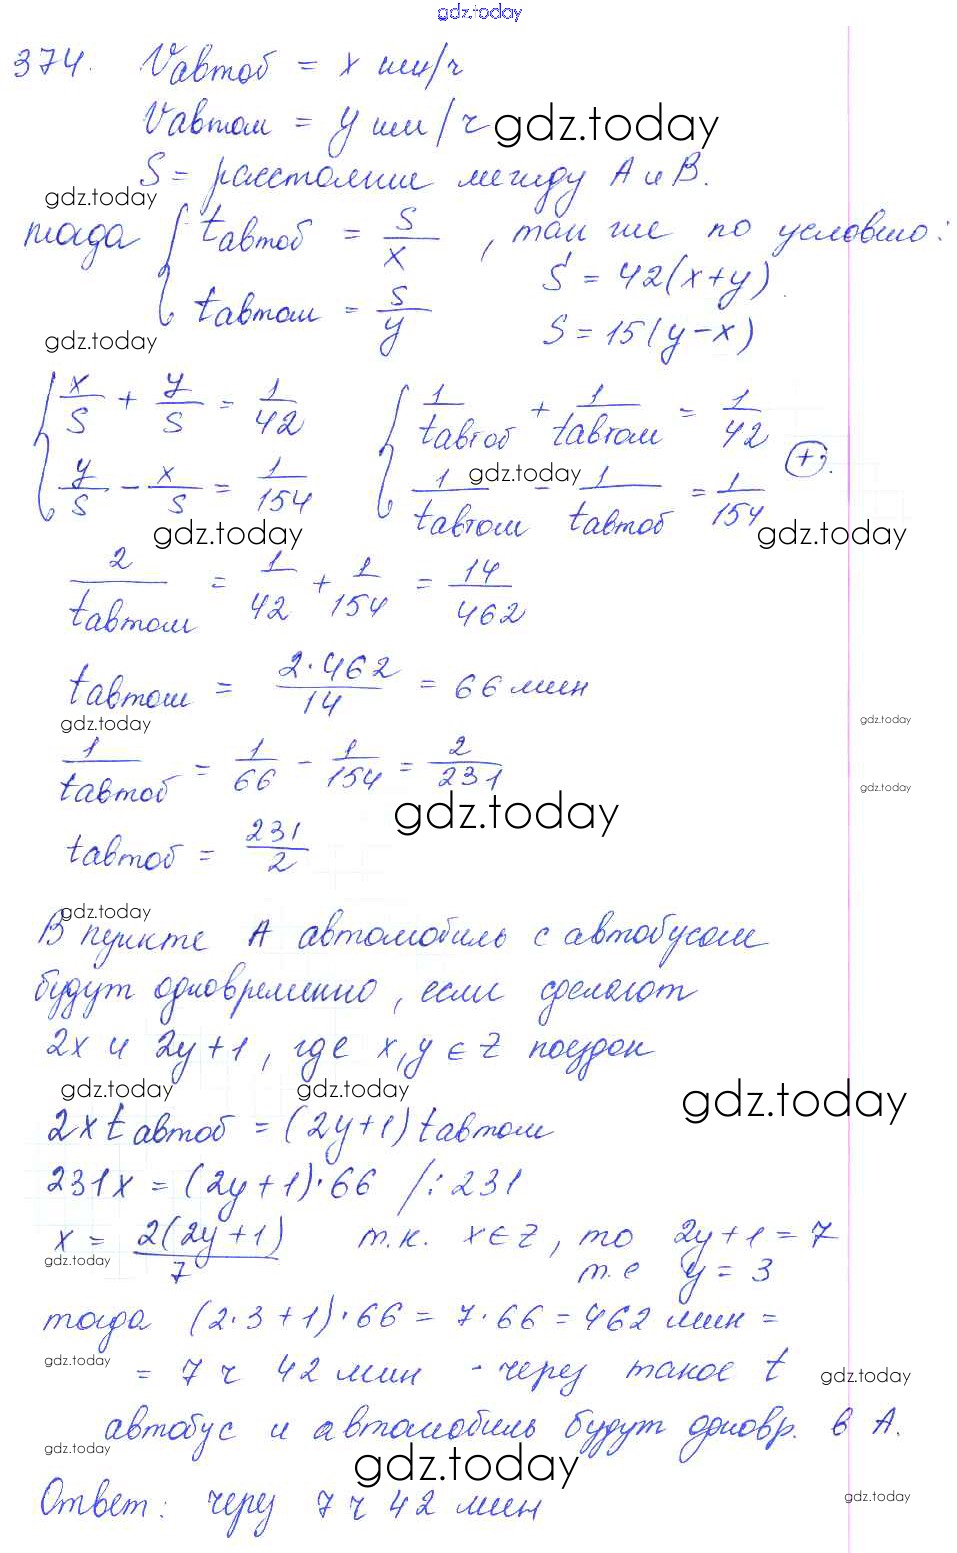 gdz.today
374. Vавтоб = x км/ч
Vавтом = y км/ч gdz.today
S = расстояние между A и B.
gdz.today
тогда { tавтоб = S/x , так же по условию:
S = 42(x+y)
tавтом = S/y
S = 15(y-x)
gdz.today
{ x/S + y/S = 1/42 { 1/tавтоб + 1/tавтом = 1/42
(+).
gdz.today
y/S - x/S = 1/154 1/tавтом - 1/tавтоб = 1/154
gdz.today gdz.today
2/tавтом = 1/42 + 1/154 = 14/462
tавтом = 2·462/14 = 66 мин
gdz.today gdz.today
1/tавтоб = 1/66 - 1/154 = 2/231
gdz.today gdz.today
tавтоб = 231/2
gdz.today
В пункте A автомобиль с автобусом
будут одновременно, если сделают
2x и 2y+1, где x,y ∈ Z поездок
gdz.today gdz.today gdz.today
2x tавтоб = (2y+1) tавтом
231x = (2y+1)·66 /:231
x = 2(2y+1)/7 т.к. x∈Z, то 2y+1 = 7
gdz.today т.е y = 3
тогда (2·3+1)·66 = 7·66 = 462 мин =
gdz.today
= 7 ч 42 мин - через такое t gdz.today
автобус и автомобиль будут одновр. в A.
gdz.today gdz.today
Ответ: через 7 ч 42 мин gdz.today